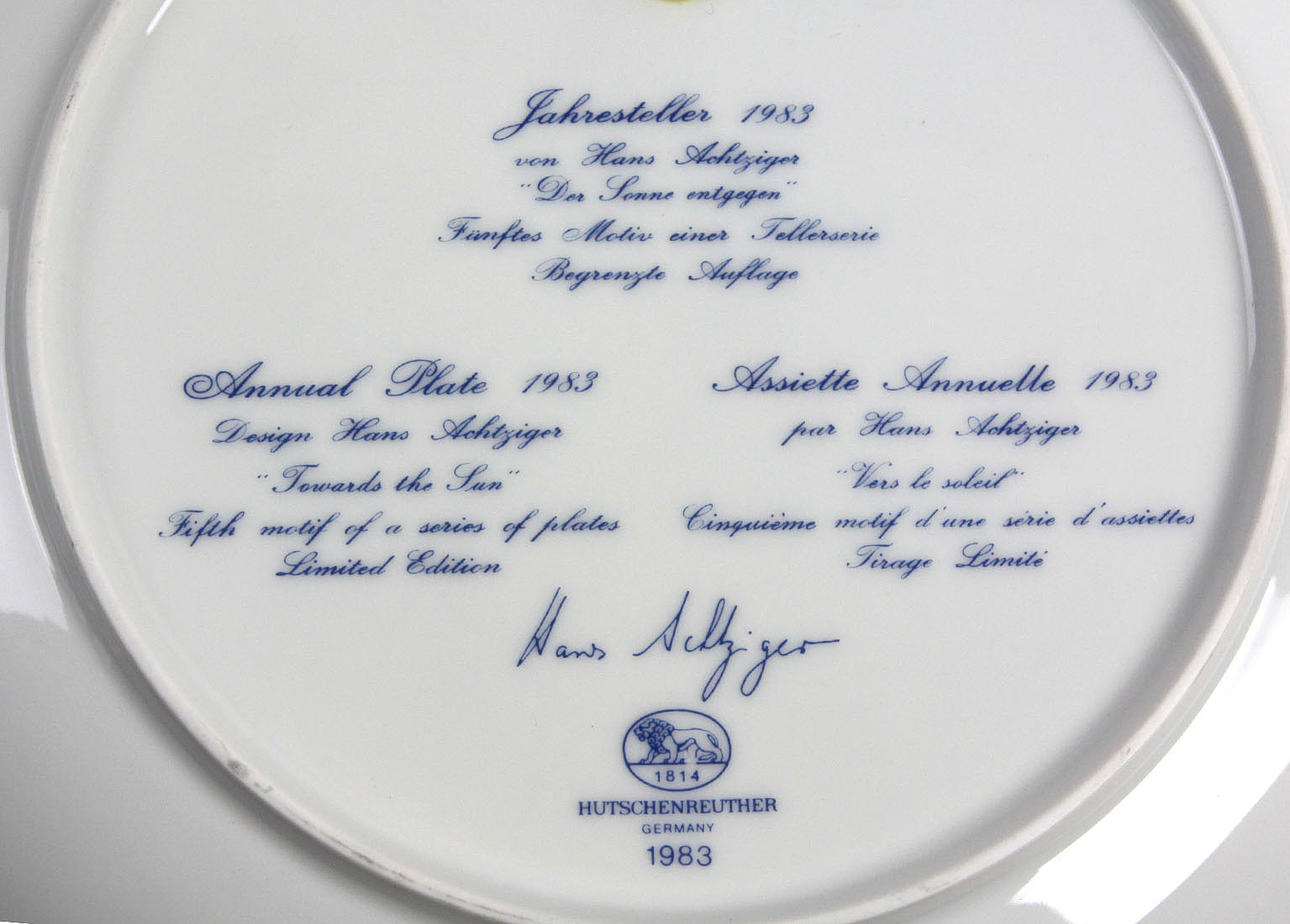 Jahresteller 1983
von Hans Achtziger
"Der Sonne entgegen"
Fünftes Motiv einer Tellerserie
Begrenzte Auflage
Annual Plate 1983
Design Hans Achtziger
"Towards the Sun"
Fifth motif of a series of plates
Limited Edition
Assiette Annuelle 1983
par Hans Achtziger
"Vers le soleil"
Cinquième motif d'une série d'assiettes
Tirage Limité
Hans Achtziger
1814
HUTSCHENREUTHER
GERMANY
1983